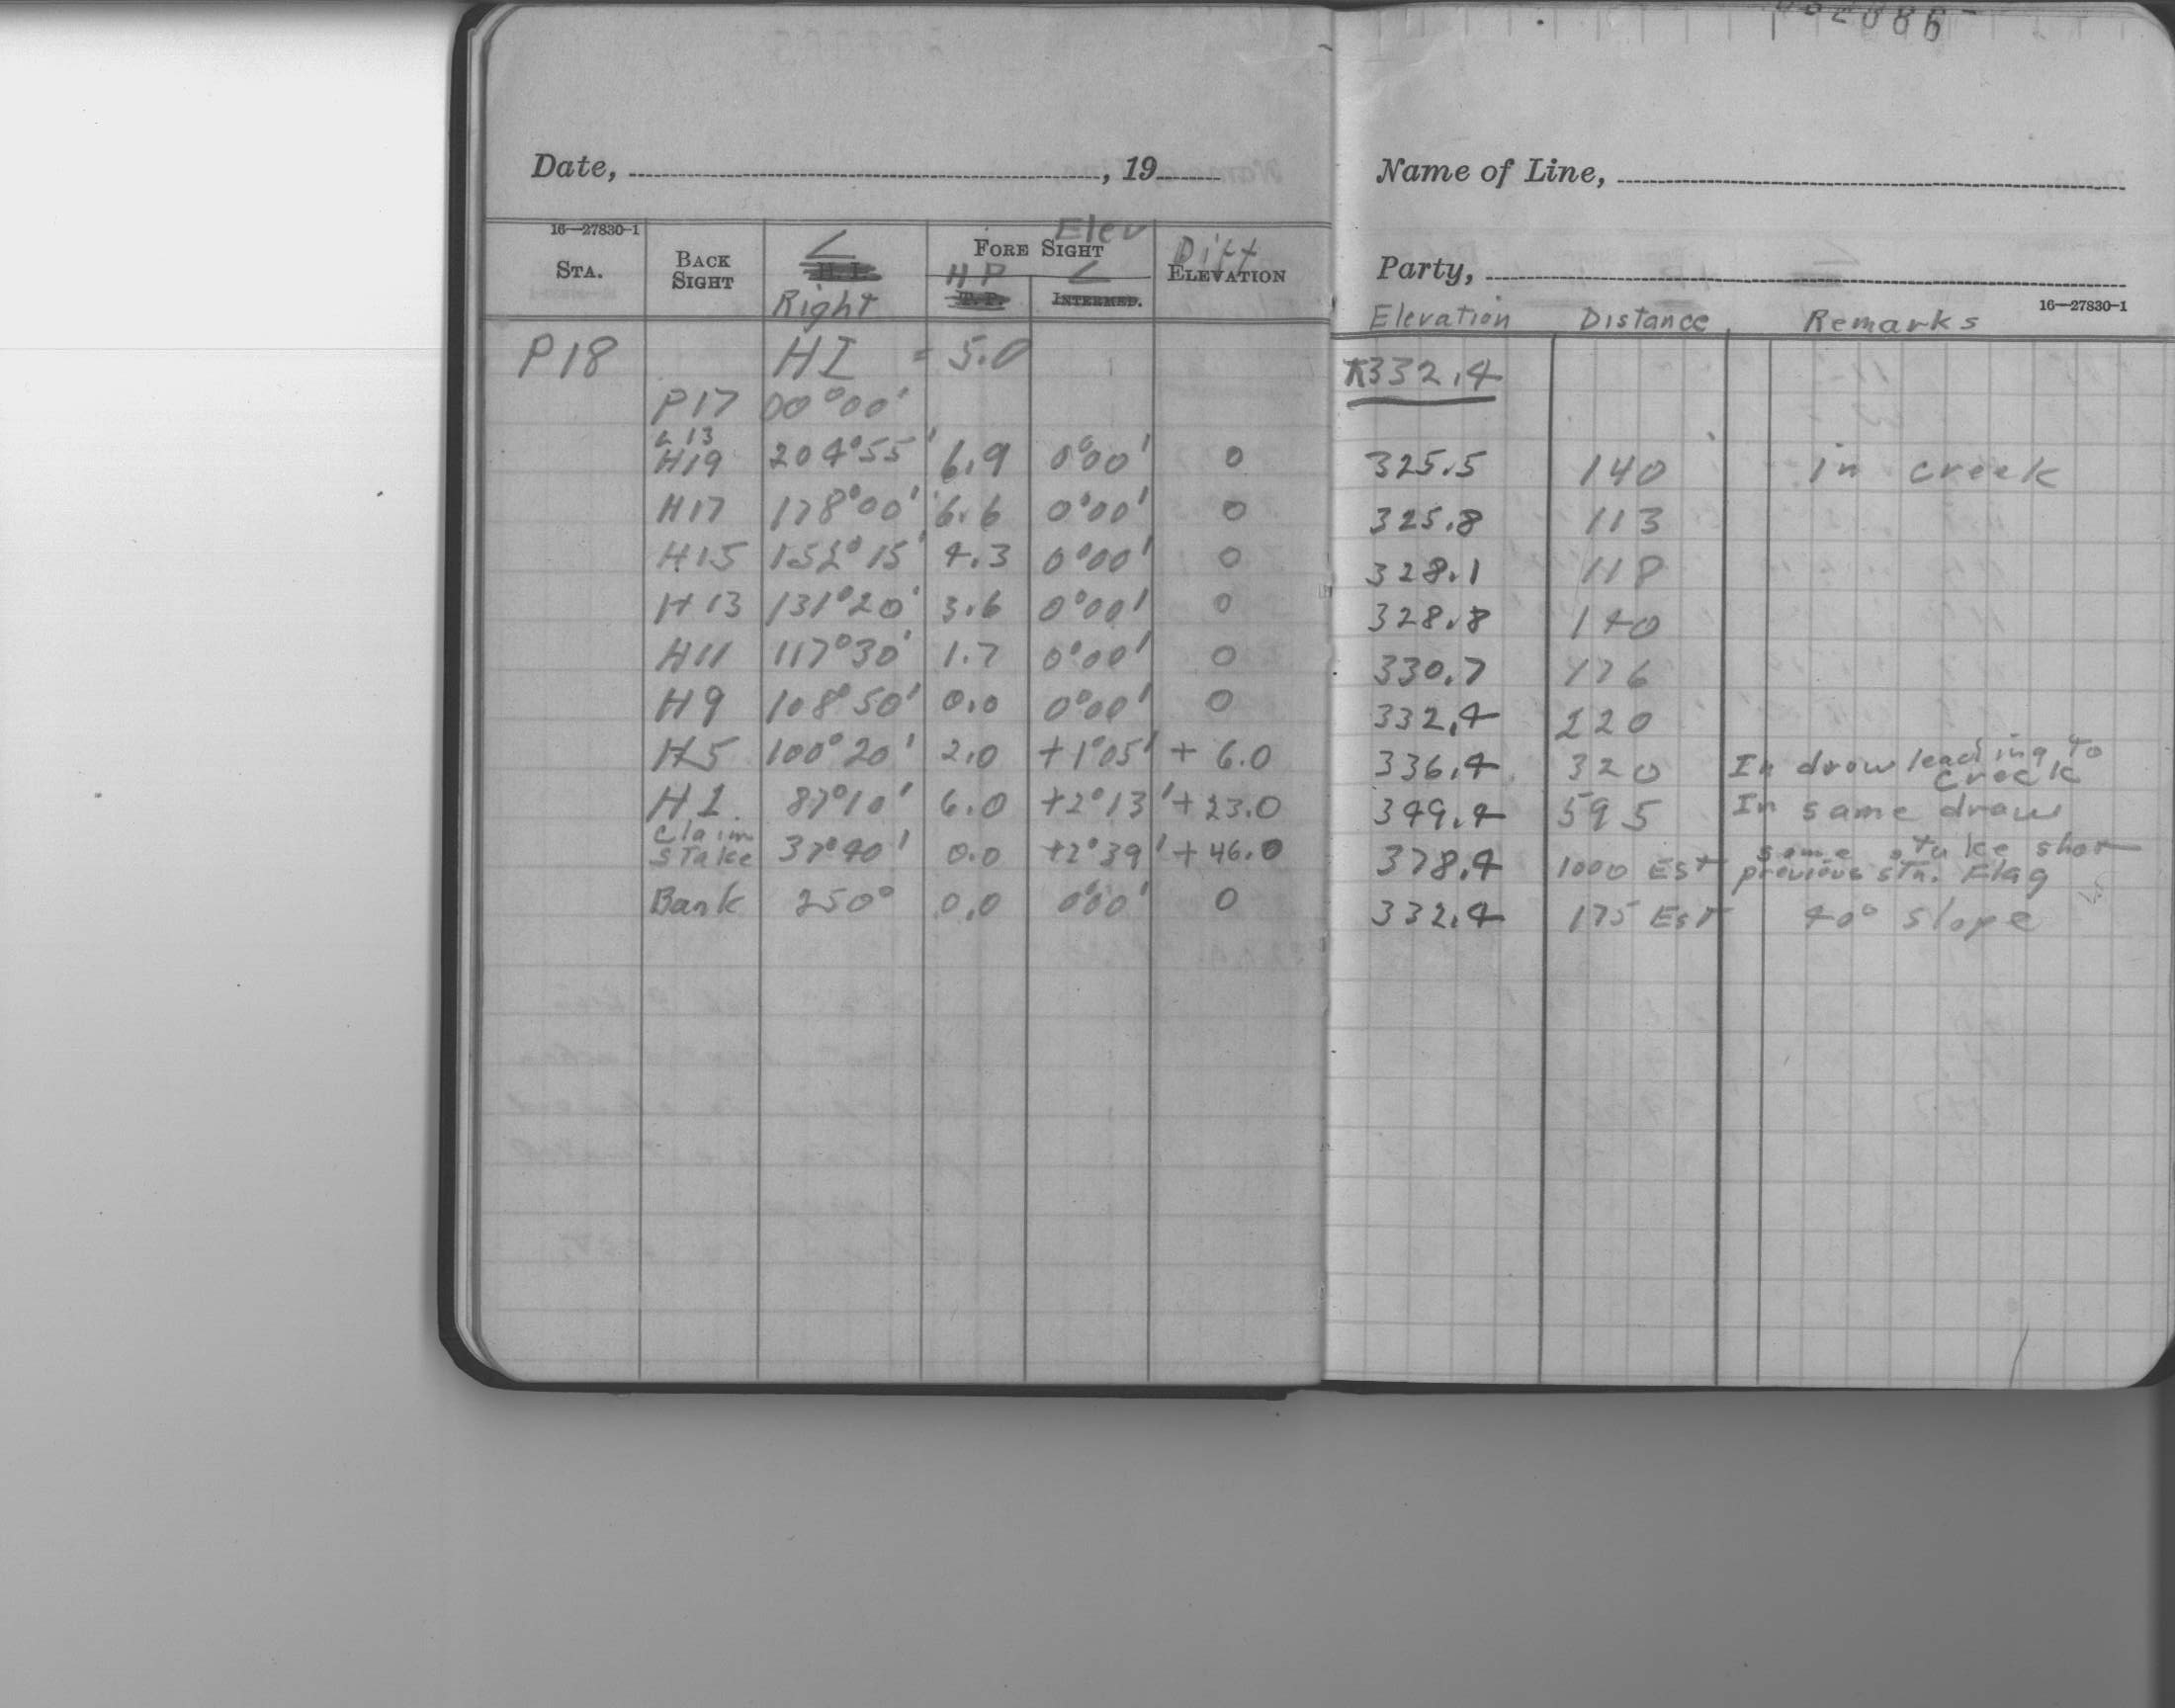 Date, , 19
16—27830-1
STA.
BACK SIGHT
∠
H. I.
Right
FORE SIGHT
Elev
H P
T. P.
∠
INTERMED.
Diff
ELEVATION
Name of Line,
Party,
16—27830-1
Elevation Distance Remarks
P18 HI = 5.0 332.4
P17 00°00'
L 13
H19 204°55' 6.9 0°00' 0 325.5 140 in creek
H17 178°00' 6.6 0°00' 0 325.8 113
H15 152°15' 4.3 0°00' 0 328.1 118
H13 131°20' 3.6 0°00' 0 328.8 140
H11 117°30' 1.7 0°00' 0 330.7 176
H9 108°50' 0.0 0°00' 0 332.4 220
H5 100°20' 2.0 +1°05' + 6.0 336.4 320 In draw leading to creek
H1 87°10' 6.0 +2°13' + 23.0 349.4 595 In same draw
Claim Stake 37°40' 0.0 +2°39' + 46.0 378.4 1000 Est same stake shot previous stn. Flag
Bank 250° 0.0 0°00' 0 332.4 175 Est 40° slope